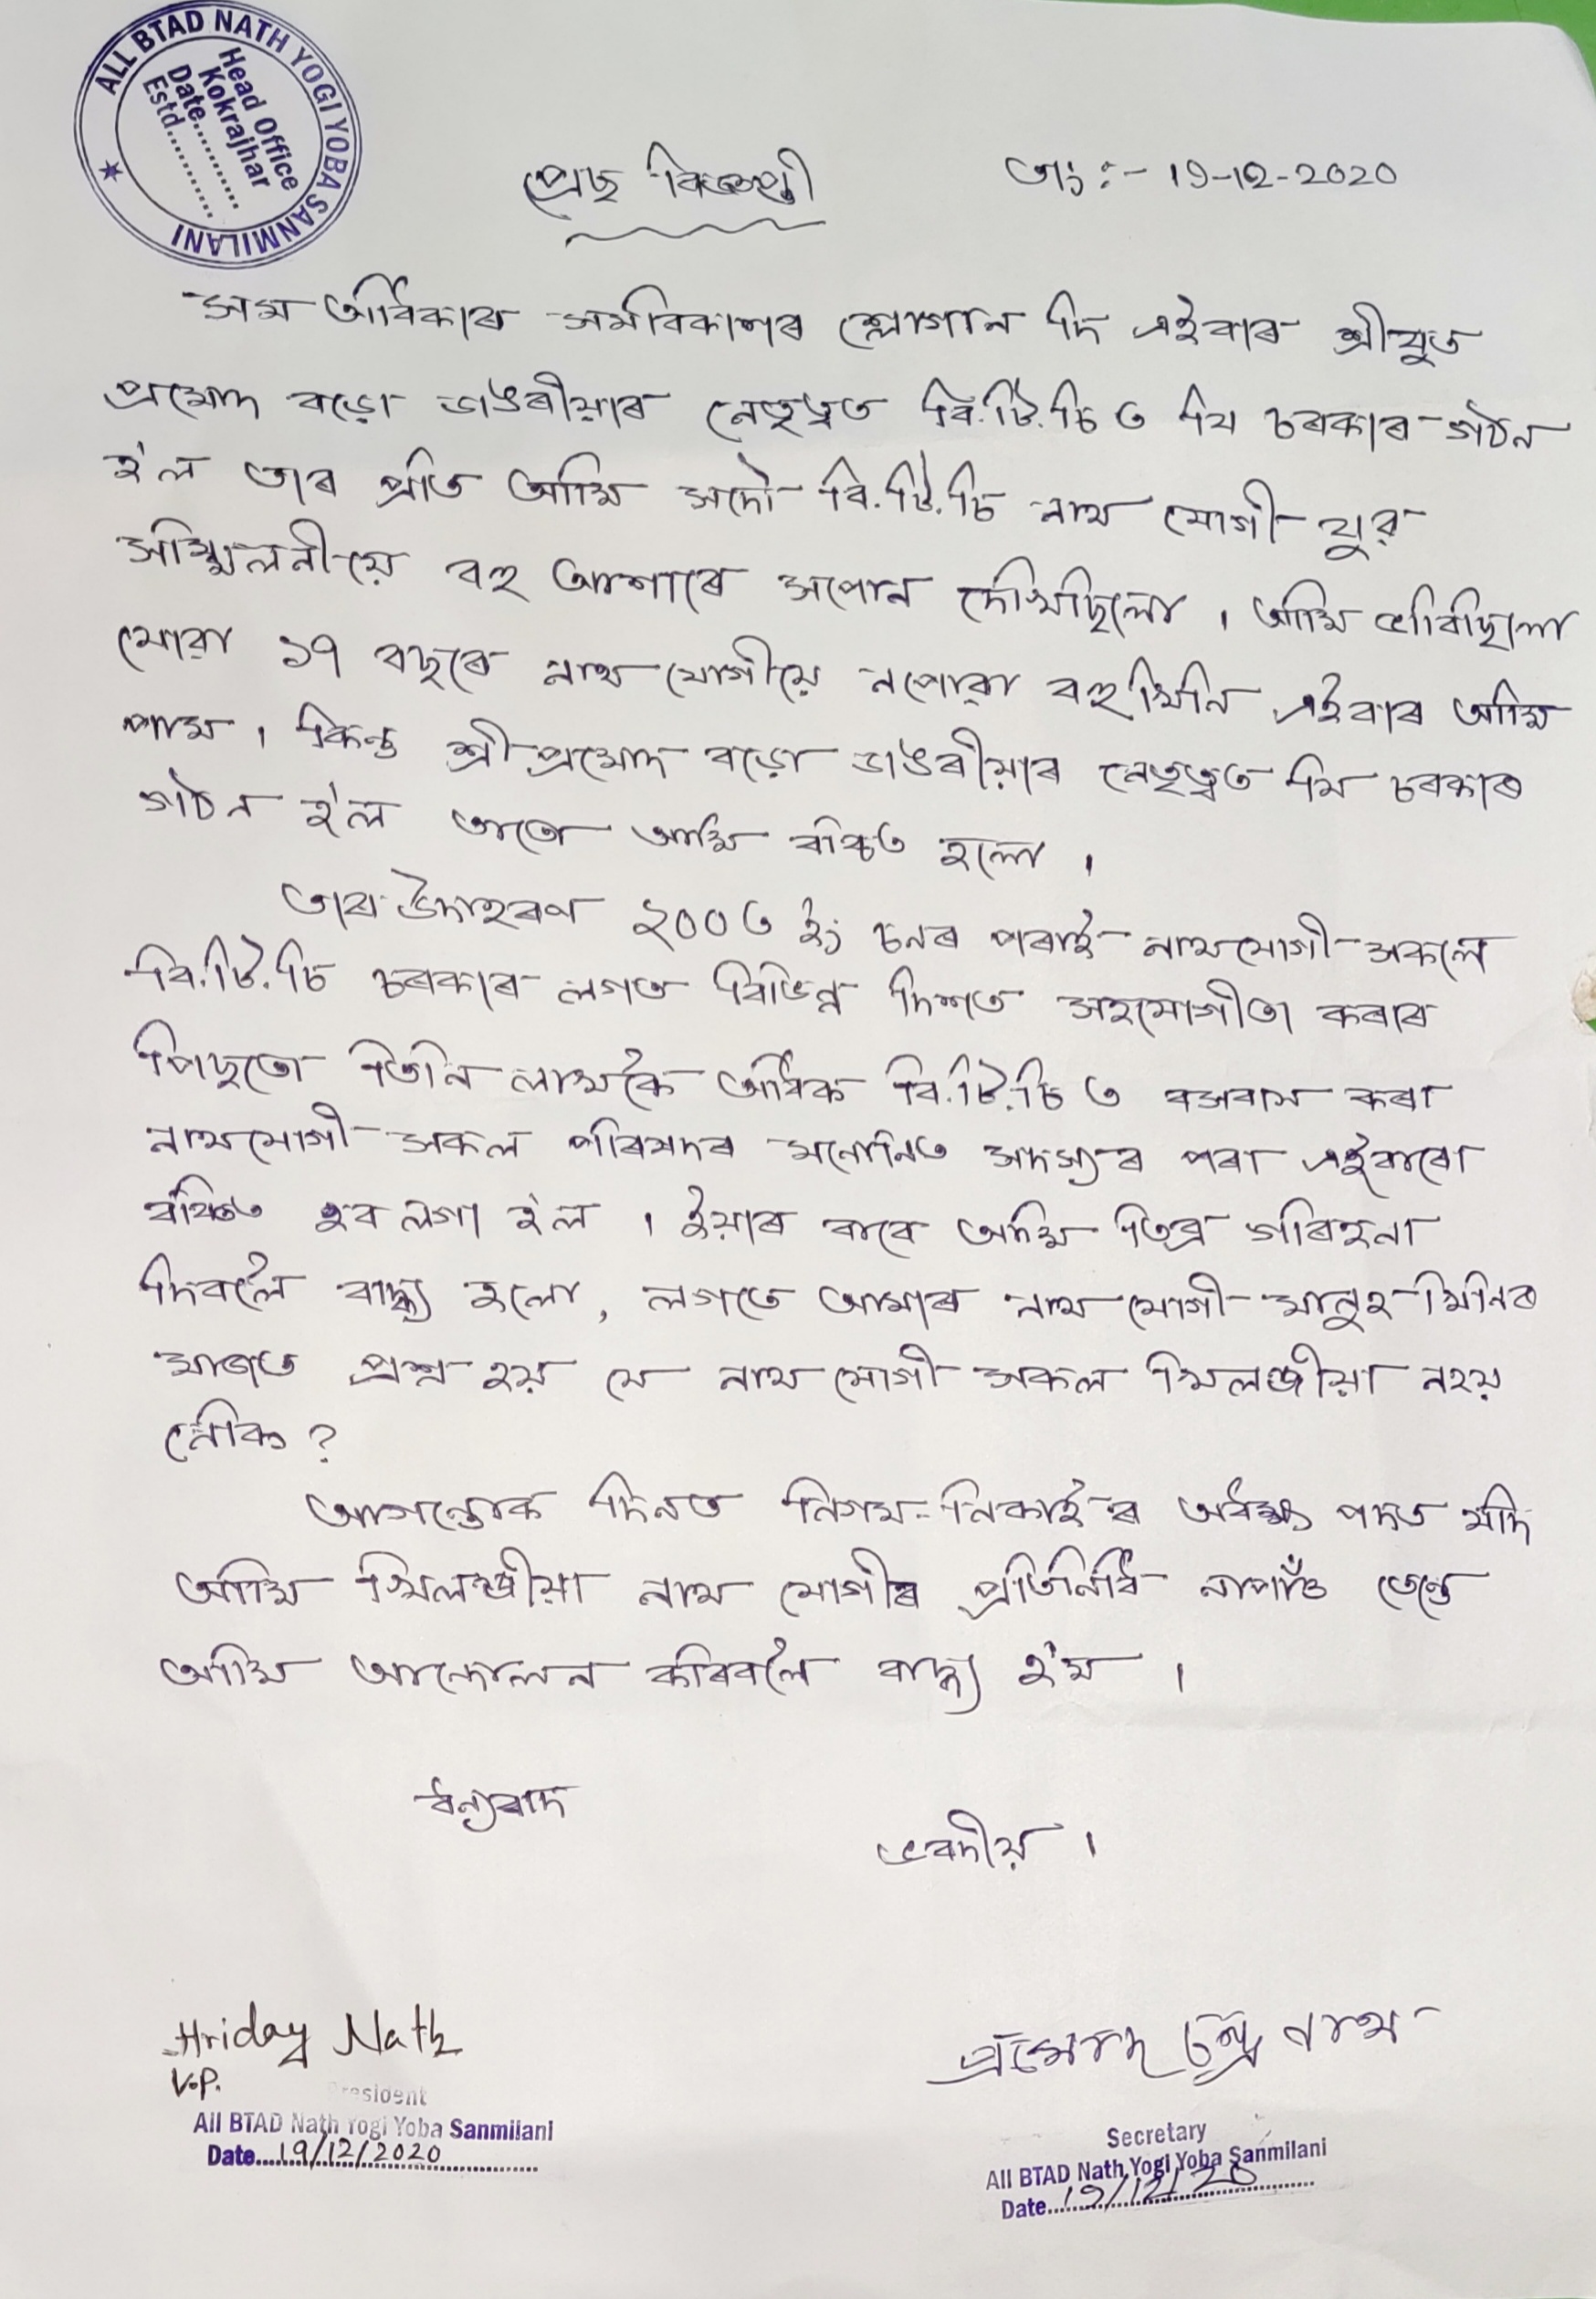 ALL BTAD NATH YOGI YOBA SANMILANI
Head Office
Kokrajhar
Date............
Estd............
প্ৰেছ বিজ্ঞপ্তী
তাং :- 19-12-2020
সম অধিকাৰ সমবিকাশৰ শ্লোগান দি এইবাৰ শ্ৰীযুত
প্ৰমোদ বড়ো ডাঙৰীয়াৰ নেতৃত্বত বি.টি.চি ত যি চৰকাৰ গঠন
হ'ল তাৰ প্ৰতি আমি সদৌ বি.টি.চি নাথ যোগী যুৱ
সম্মিলনীয়ে বহু আশাৰে সপোন দেখিছিলো । আমি ভাবিছিলো
যোৱা ১৭ বছৰে নাথ যোগীয়ে নপোৱা বহুখিনি এইবাৰ আমি
পাম । কিন্তু শ্ৰী প্ৰমোদ বড়ো ডাঙৰীয়াৰ নেতৃত্বত যি চৰকাৰ
গঠন হ'ল তাতো আমি বঞ্চিত হলো ।
তাৰ উদাহৰণ ২০০৩ ইং চনৰ পৰাই নাথযোগী সকলে
বি.টি.চি চৰকাৰ লগত বিভিন্ন দিশত সহযোগীতা কৰাৰ
পিছতো তিনি লাখকৈ অধিক বি.টি.চি ত বসবাস কৰা
নাথযোগী সকল পৰিষদৰ মনোনিত সদস্যৰ পৰা এইবাৰো
বঞ্চিত হব লগা হ'ল । ইয়াৰ বাবে আমি তিব্ৰ গৰিহনা
দিবলৈ বাদ্ধ্য হলো, লগতে আমাৰ নাথ যোগী মানুহ খিনিৰ
মাজত প্ৰশ্ন হয় যে নাথ যোগী সকল খিলঞ্জীয়া নহয়
নেকি ?
আগন্তোক দিনত নিগম-নিকাই'ৰ অধক্ষ্য পদত যদি
আমি খিলঞ্জীয়া নাথ যোগীৰ প্ৰতিনিধি নাপাওঁ তেন্তে
আমি আন্দোলন কৰিবলৈ বাদ্ধ্য হ'ম ।
ধন্যবাদ
ভবদীয় ।
Hriday Nath
V.P.
President
All BTAD Nath Yogi Yoba Sanmilani
Date....19/12/2020
প্ৰমোদ চন্দ্ৰ নাথ
Secretary
All BTAD Nath Yogi Yoba Sanmilani
Date....19/12/20